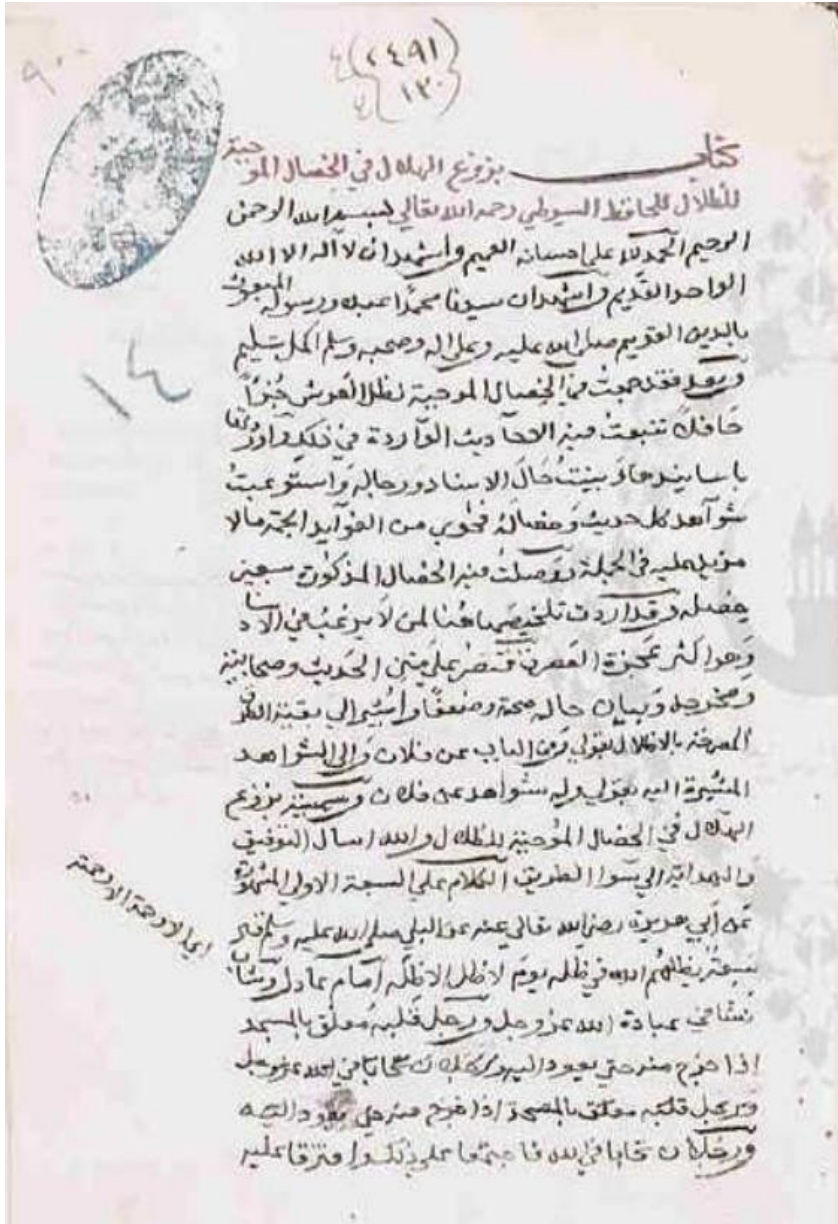 ٩٠٠
٢٤٩١
١٣٠
كتاب بزوغ الهلال في الخصال الموجبة
للظلال للحافظ السيوطي رحمه الله تعالي بسم الله الرحمن
الرحيم الحمد لله علي احسانه العميم واشهد ان لا اله الا الله
الواحد القديم واشهد ان سيدنا محمدا عبده ورسوله المبعوث
بالدين القويم صلي الله عليه وعلي اله وصحبه وسلم اكمل تسليم
وبعد فقد جمعت في الخصال الموجبة لظل العرش جزءاً
حافلا تتبعت فيه الاحاديث الواردة في ذلك واوردتها
باسانيدها وبينت حال الاسناد ورجاله واستوعبت
شواهد كل حديث وخصاله فحوي من الفوايد الجمة مالا
مزيد عليه في الجملة ووصلت فيه الخصال المذكورة سبعين
خصله وقد اردت تلخيصها هنا لمن لا يرغب في الاسناد
وهم اكثر عجزة العصر فاقتصر علي متن الحديث وصحابيه
ومخرجه وبيان حاله صحة وضعفا واشير الي بقية
المصرحة بالاظلال بقولي وفي الباب عن فلان والي الشواهد
المشيرة اليه بقولي وله شواهد عن فلان وسميته بزوغ
الهلال في الخصال الموجبة للظلال والله اسال التوفيق
والهداية الي سوا الطريق الكلام علي السبعة الاولي المشهورة
عن ابي هريرة رضي الله تعالي عنه عن النبي صلي الله عليه وسلم قال
سبعة يظلهم الله في ظله يوم لا ظل الا ظله امام عادل وشاب
نشا في عبادة الله عز وجل ورجل قلبه معلق بالمسجد
اذا خرج منه حتي يعود اليه ورجلان تحابا في الله عز وجل
ورجل قلبه معلق بالمسجد اذا خرج منه حتي يعود اليه
ورجلان تحابا في الله فاجتمعا علي ذلك وافترقا عليه